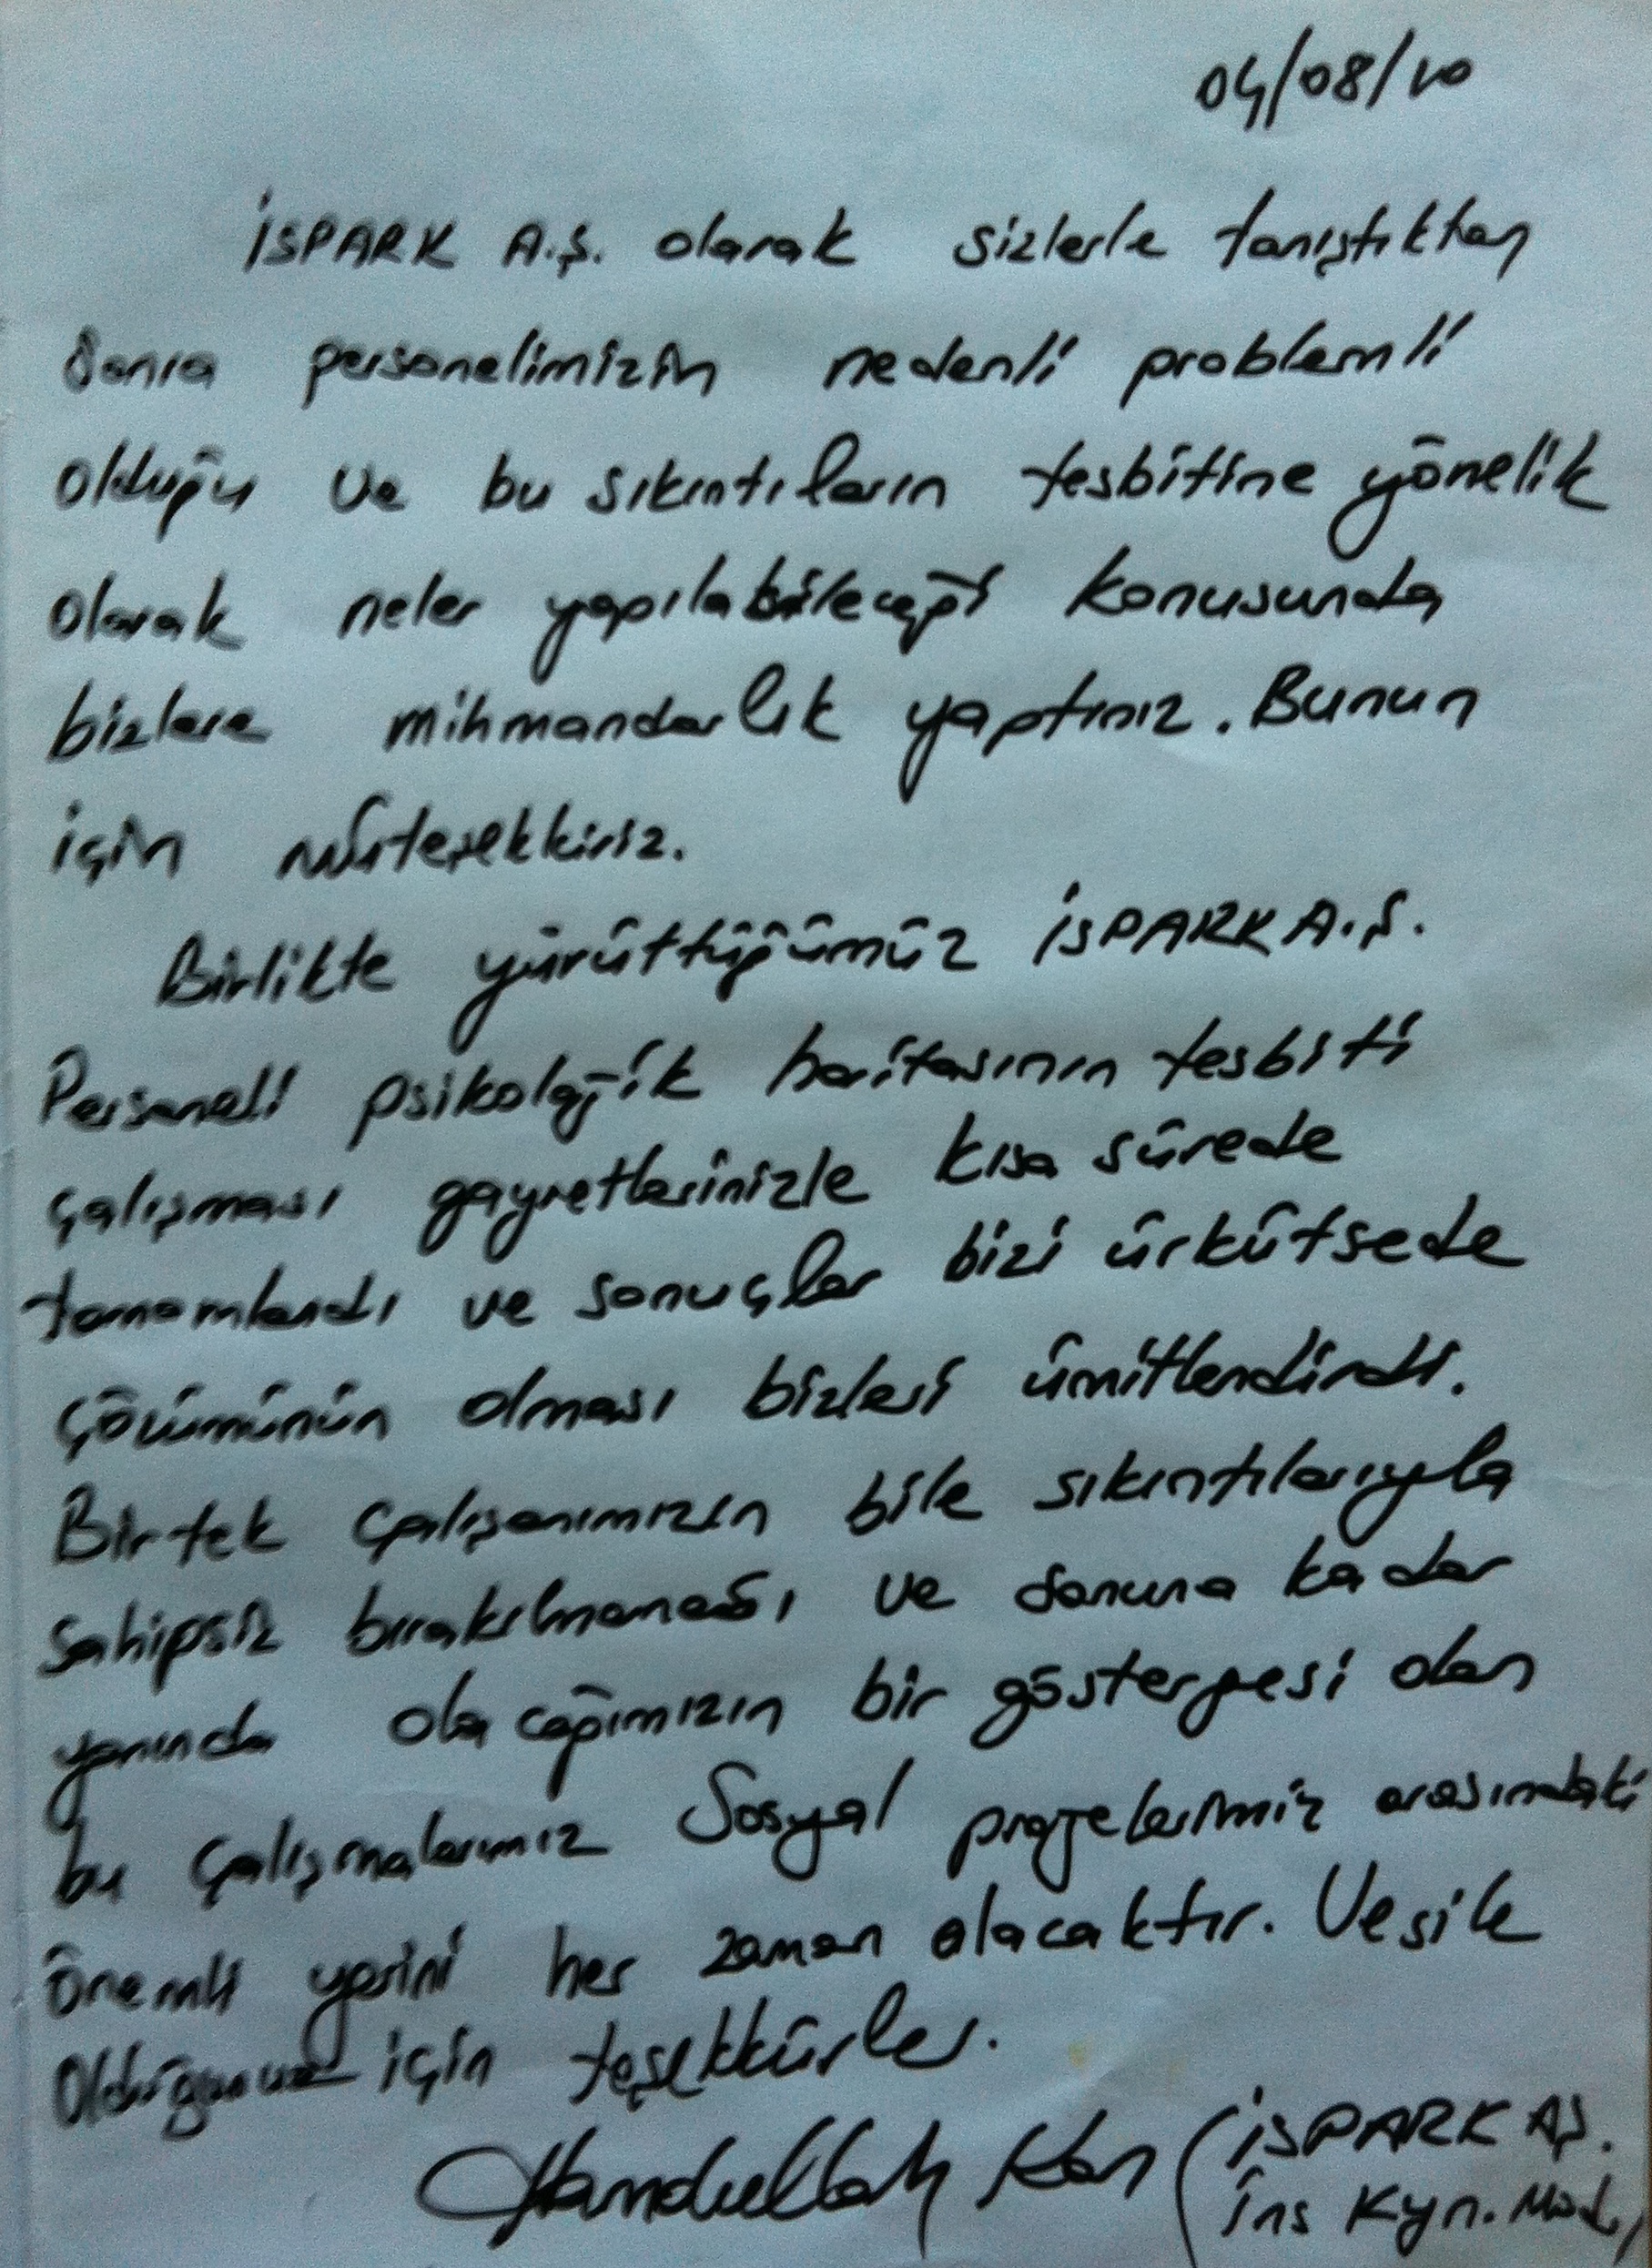 04/08/10
İSPARK A.Ş. olarak sizlerle tanıştıktan
Sonra personelimizin nedenli problemli
olduğu ve bu sıkıntıların tesbitine yönelik
olarak neler yapılabileceği konusunda
bizlere mihmandarlık yaptınız. Bunun
için müteşekkiriz.
Birlikte yürüttüğümüz İSPARK A.Ş.
Personeli psikolojik haritasının tesbiti
çalışması gayretlerinizle kısa sürede
tamamlandı ve sonuçlar bizi ürkütsede
çözümünün olması bizleri ümitlendirdi.
Birtek çalışanımızın bile sıkıntılarıyla
sahipsiz bırakılmaması ve sonuna kadar
yanında olacağımızın bir göstergesi olan
bu çalışmalarımız Sosyal projelerimiz arasındaki
Önemli yerini her zaman alacaktır. Vesile
olduğunuz için teşekkürler.
Hamdullah Kan (İSPARK AŞ.
İns Kyn. Müd.)